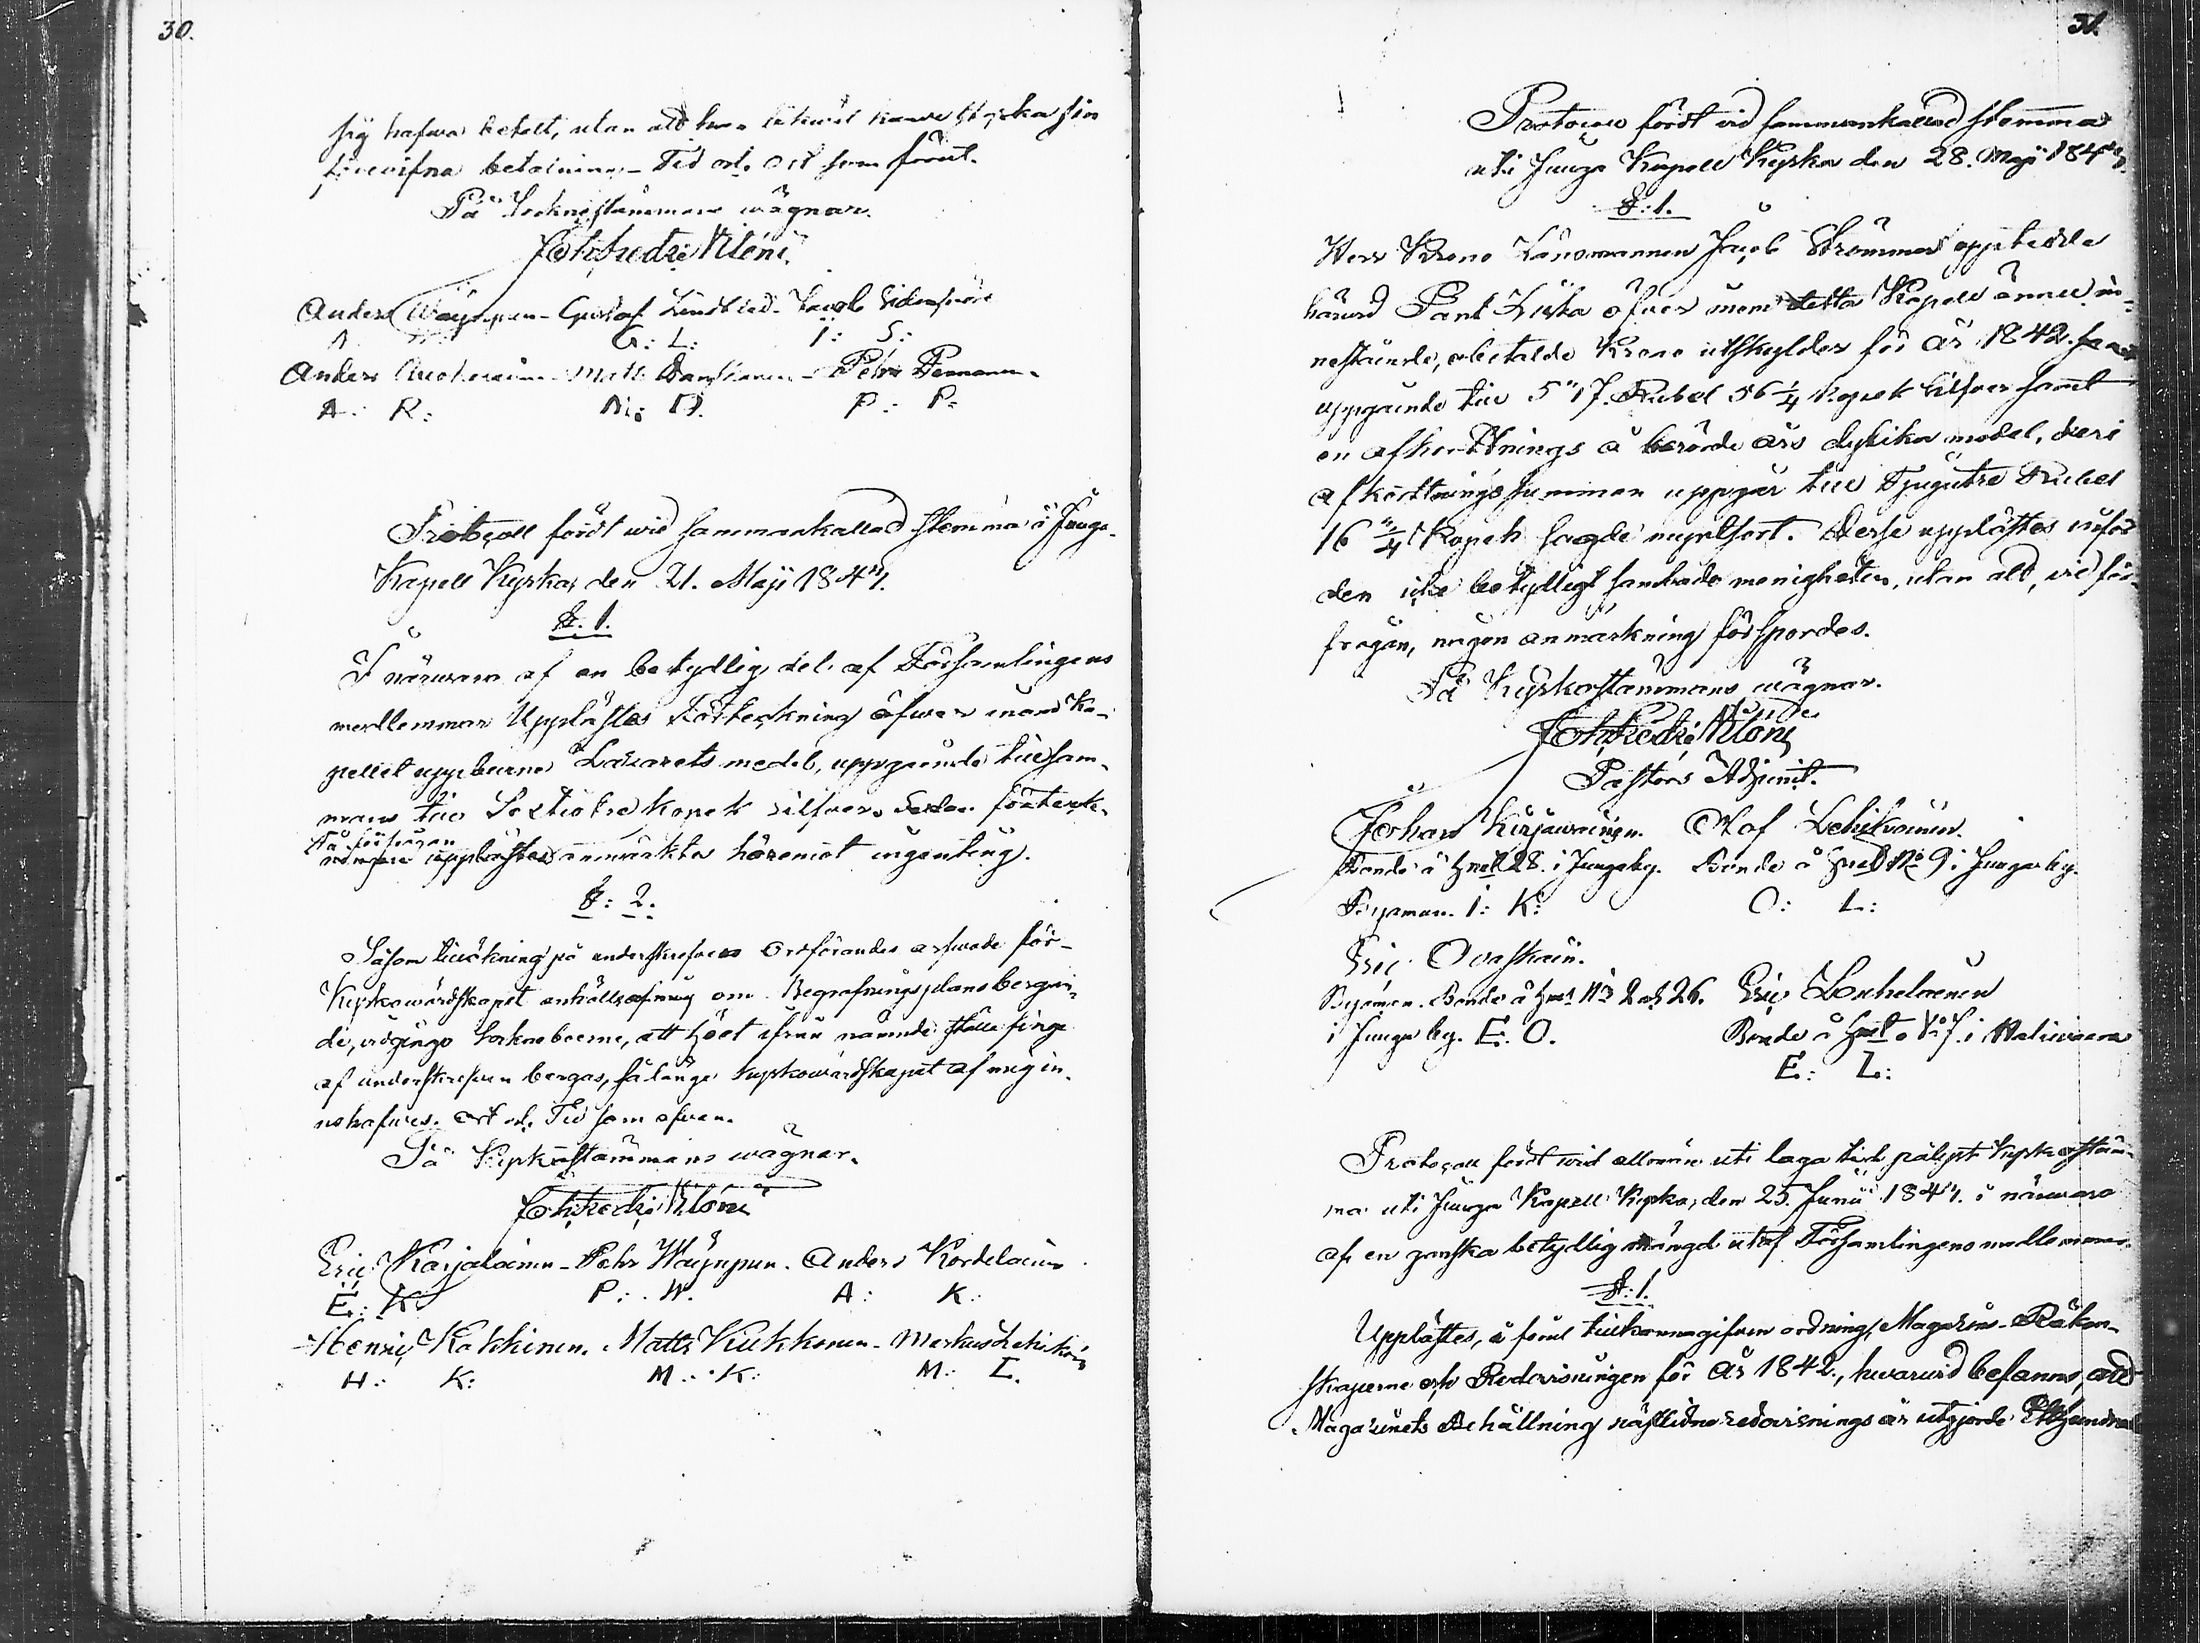 30.
sig hafwa betalt, utan att kunna styrka sin
föregifna betalning. Tid och Ort som förut.
På Socknestämmans wägnar.
Joh: Fredr: Nilóni
Anders Wäynpen - Gustaf Lindblad - Jacob
A: W: G: L: I: S:
Anders - Matts - Petri
A: R: M: D. P: P:
Protocoll fördt wid sammankallad stemma i Junga
Kapell Kyrka, den 21. Maji 184
§. 1.
I närwaro af en betydlig del af Församlingens
medlemmar Upplästes Förteckning öfwer inom Ka-
pellet uppburne Lazarets medel, uppgående tillsam-
mans till Sextiotre Kopek silfver. Sedan förteck-
På förfrågan
ningen upplästes anmärkte häremot ingenting.
§: 2.
Såsom tillökning på underskrefvens Ordförandes arfwode för
Kyrkowärdskapet anhölls af mig om Begrafningsplans bergan-
de, widgingo Sockneboerne, att Höet ifrån nämnde ställe finge
af underskrefven bergas, så länge kyrkowärdskapet af mig in-
nehafwes. Ort och Tid som ofvan.
På Kyrkostämmans wägnar.
Joh: Fredr: Nilóni
Eric Karjalainen - Pehr Wäynpen. Anders Kordelain
E: K: P: W. A: K:
Henric Kakkinen. Matts Kukkonen - Markus Lehikoin
H: K: M: K: M: L.
31.
Protocoll fördt vid sammankallad stemma
uti Junga Kapell Kyrka den 28. Maji 184
§: 1.
Herr Krono Länsmannen Jacob Strömmer upptedde
härvid Rest Lista öfver inom detta Kapell ännu in-
nestående, obetalde Krono utskylder för År 1842.
uppgående till 517. Rubel 56 1/4 Kopek Silfver samt
en afkortnings å berörde års dylika medel, deri
afkortningssumman uppgår till Tjugutre Rubel
16 /4 Kopek sagde myntsort. Desse upplästes inför
den icke betydligt samlade menigheten, utan att, vid för-
frågan, någon anmärkning förspordes.
På Kyrkostämmans wägnar.
Joh: Fredr: Nilóni
Pastors Adjunct.
Johan Kirjawainen. Olof Lehikoinen.
Bonde å Hmt 28. i Junga by. Bonde å Hmt No 9 i Junga by.
I: K: O: L:
Eric Ovaskain.
Bonde å Hmt No 2 och 26. Eric
i Junga by. E: O. Bonde å Hmt No 7. i
E: L:
Protocoll fördt wid allmän uti laga tid pålyst Kyrkostäm-
ma uti Junga Kapell Kyrka, den 25. Junii 184 i närwaro
af en ganska betydlig mängd utaf Församlingens medlemmar.
§: 1.
Upplästes, å förut tillkännagifven ordning, Magazins-Räken-
skaperne och Redovisningen för År 1842., hwarwid befanns, att
Magazinets Behållning nästlidne redovisnings år utgjorde Etthundra